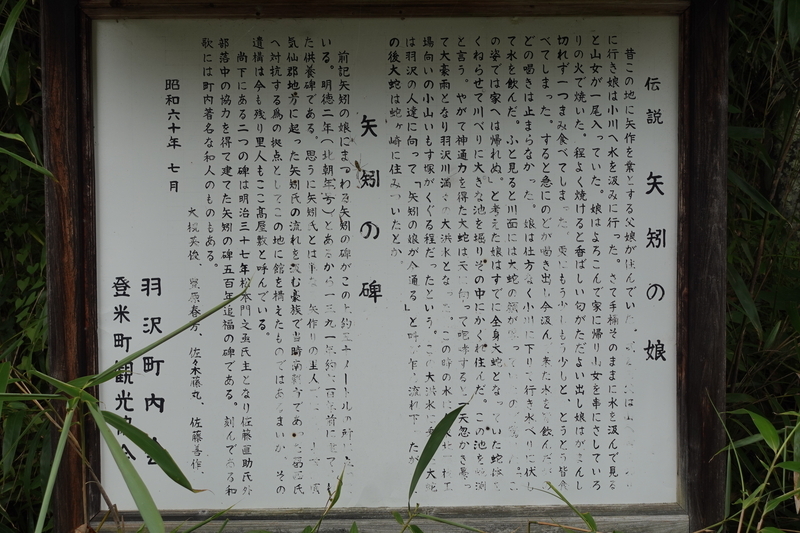 伝説 矢矧の娘
昔この地に矢作を業とする父娘が住んでいた。
に行き娘は小川へ水を汲みに行った。さて手桶そのままに水を汲んで見る
と山女が一尾入っていた。娘はよろこんで家に帰り山女を串にさしていろ
りの火で焼いた。程よく焼けると香ばしい匂がただよい出し娘はがまんし
切れず一つまみ食べてしまった もう少しもう少しと、とうとう皆食
べてしまった。すると急にのどが喝き出し今汲んで来た水を飲んだが
どの喝きは止まらなかった。娘は仕方なく小川へ下りて行き水べりに伏し
て水を飲んだ。ふと見ると川面には大蛇の顔が
の姿では家へは帰れぬ」と考えた娘はすでに全身大蛇となっていた蛇は
くねらせて川べりに大きな池を掘りその中にかくれ住んだ。この池を
と言う。やがて神通力を得た大蛇は天に向って咆哮すると一天忽かき曇っ
て大豪雨となり羽沢川満々の大洪水となった。この時の水は
場向いの小山いもす塚がくぐる程だったという。この大洪水に乗り大蛇
は羽沢の人達に向って「矢矧の娘が今通る」と呼び乍ら流れ下ったが
の後大蛇は蛇ヶ崎に住みついたとか。
矢矧の碑
前記矢矧の娘にまつわる矢矧の碑がこの上約五十メートルの所
いる。明徳二年(北朝年号)とあるから一三九一年約六百年前に
た供養碑である。思うに矢矧氏とは単な 矢作りの主人
気仙郡地方に起った矢矧氏の流れを汲む豪族で当時南朝方であった葛西氏
へ対抗する為の拠点としてこの地に館を構えたものではあるまいか。その
遺構は今も残り里人もここ高屋敷と呼んでいる。
尚下にある二つの碑は明治三十七年松本門之丞氏主となり佐藤直助氏外
部落中の協力を得て建てた矢矧の碑五百年追福の碑である。刻んである和
歌には町内著名な和人のものもある。
大槻英俊、 原春方、佐々木藤丸、佐藤善作、
昭和六十年 七月
羽沢町内会
登米町観光協会